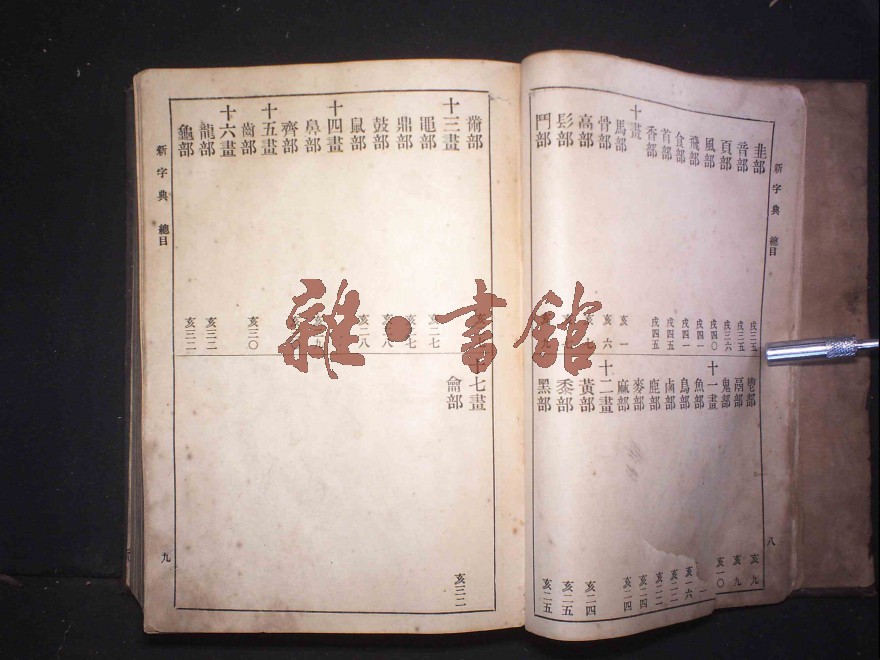 新字典 總目 八
韭部 戌三五
音部 戌三五
頁部 戌三六
風部 戌四〇
飛部 戌四一
食部 戌四一
首部 戌四五
香部 戌四五
十畫
馬部 亥一
骨部 亥六
高部
髟部
鬥部
鬯部 亥九
鬲部 亥九
鬼部 亥一〇
十一畫
魚部
鳥部 亥一六
鹵部 亥二二
鹿部 亥二二
麥部 亥二四
麻部 亥二四
十二畫
黃部 亥二四
黍部 亥二五
黑部 亥二五
黹部
十三畫
黽部 亥二七
鼎部
鼓部
鼠部 亥二八
十四畫
鼻部
齊部
十五畫
齒部 亥三〇
十六畫
龍部 亥三二
龜部 亥三二
十七畫
龠部 亥三二
新字典 總目 九
雜·書館